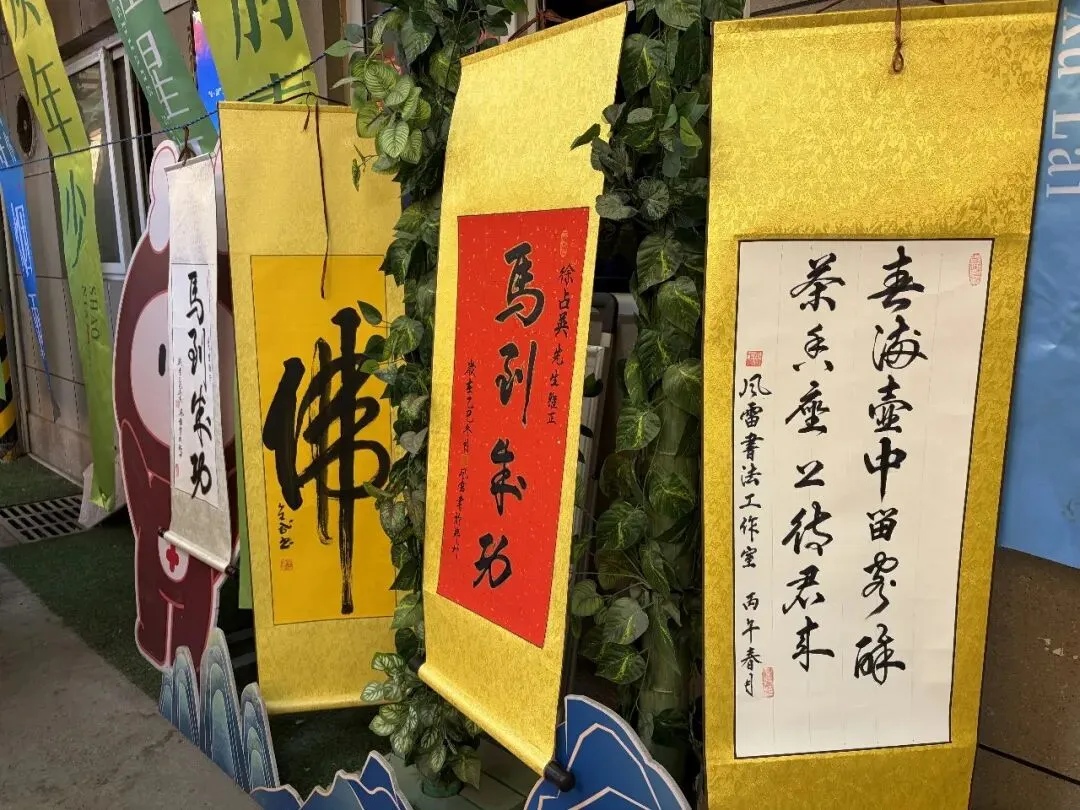 年少
SHAO
馬到成功
佛
徐占英先生雅正
馬到成功
歲在乙巳冬月 风雷書於
春海壺中留客醉
茶香座上待君来
风雷書法工作室 丙午春月
Lai